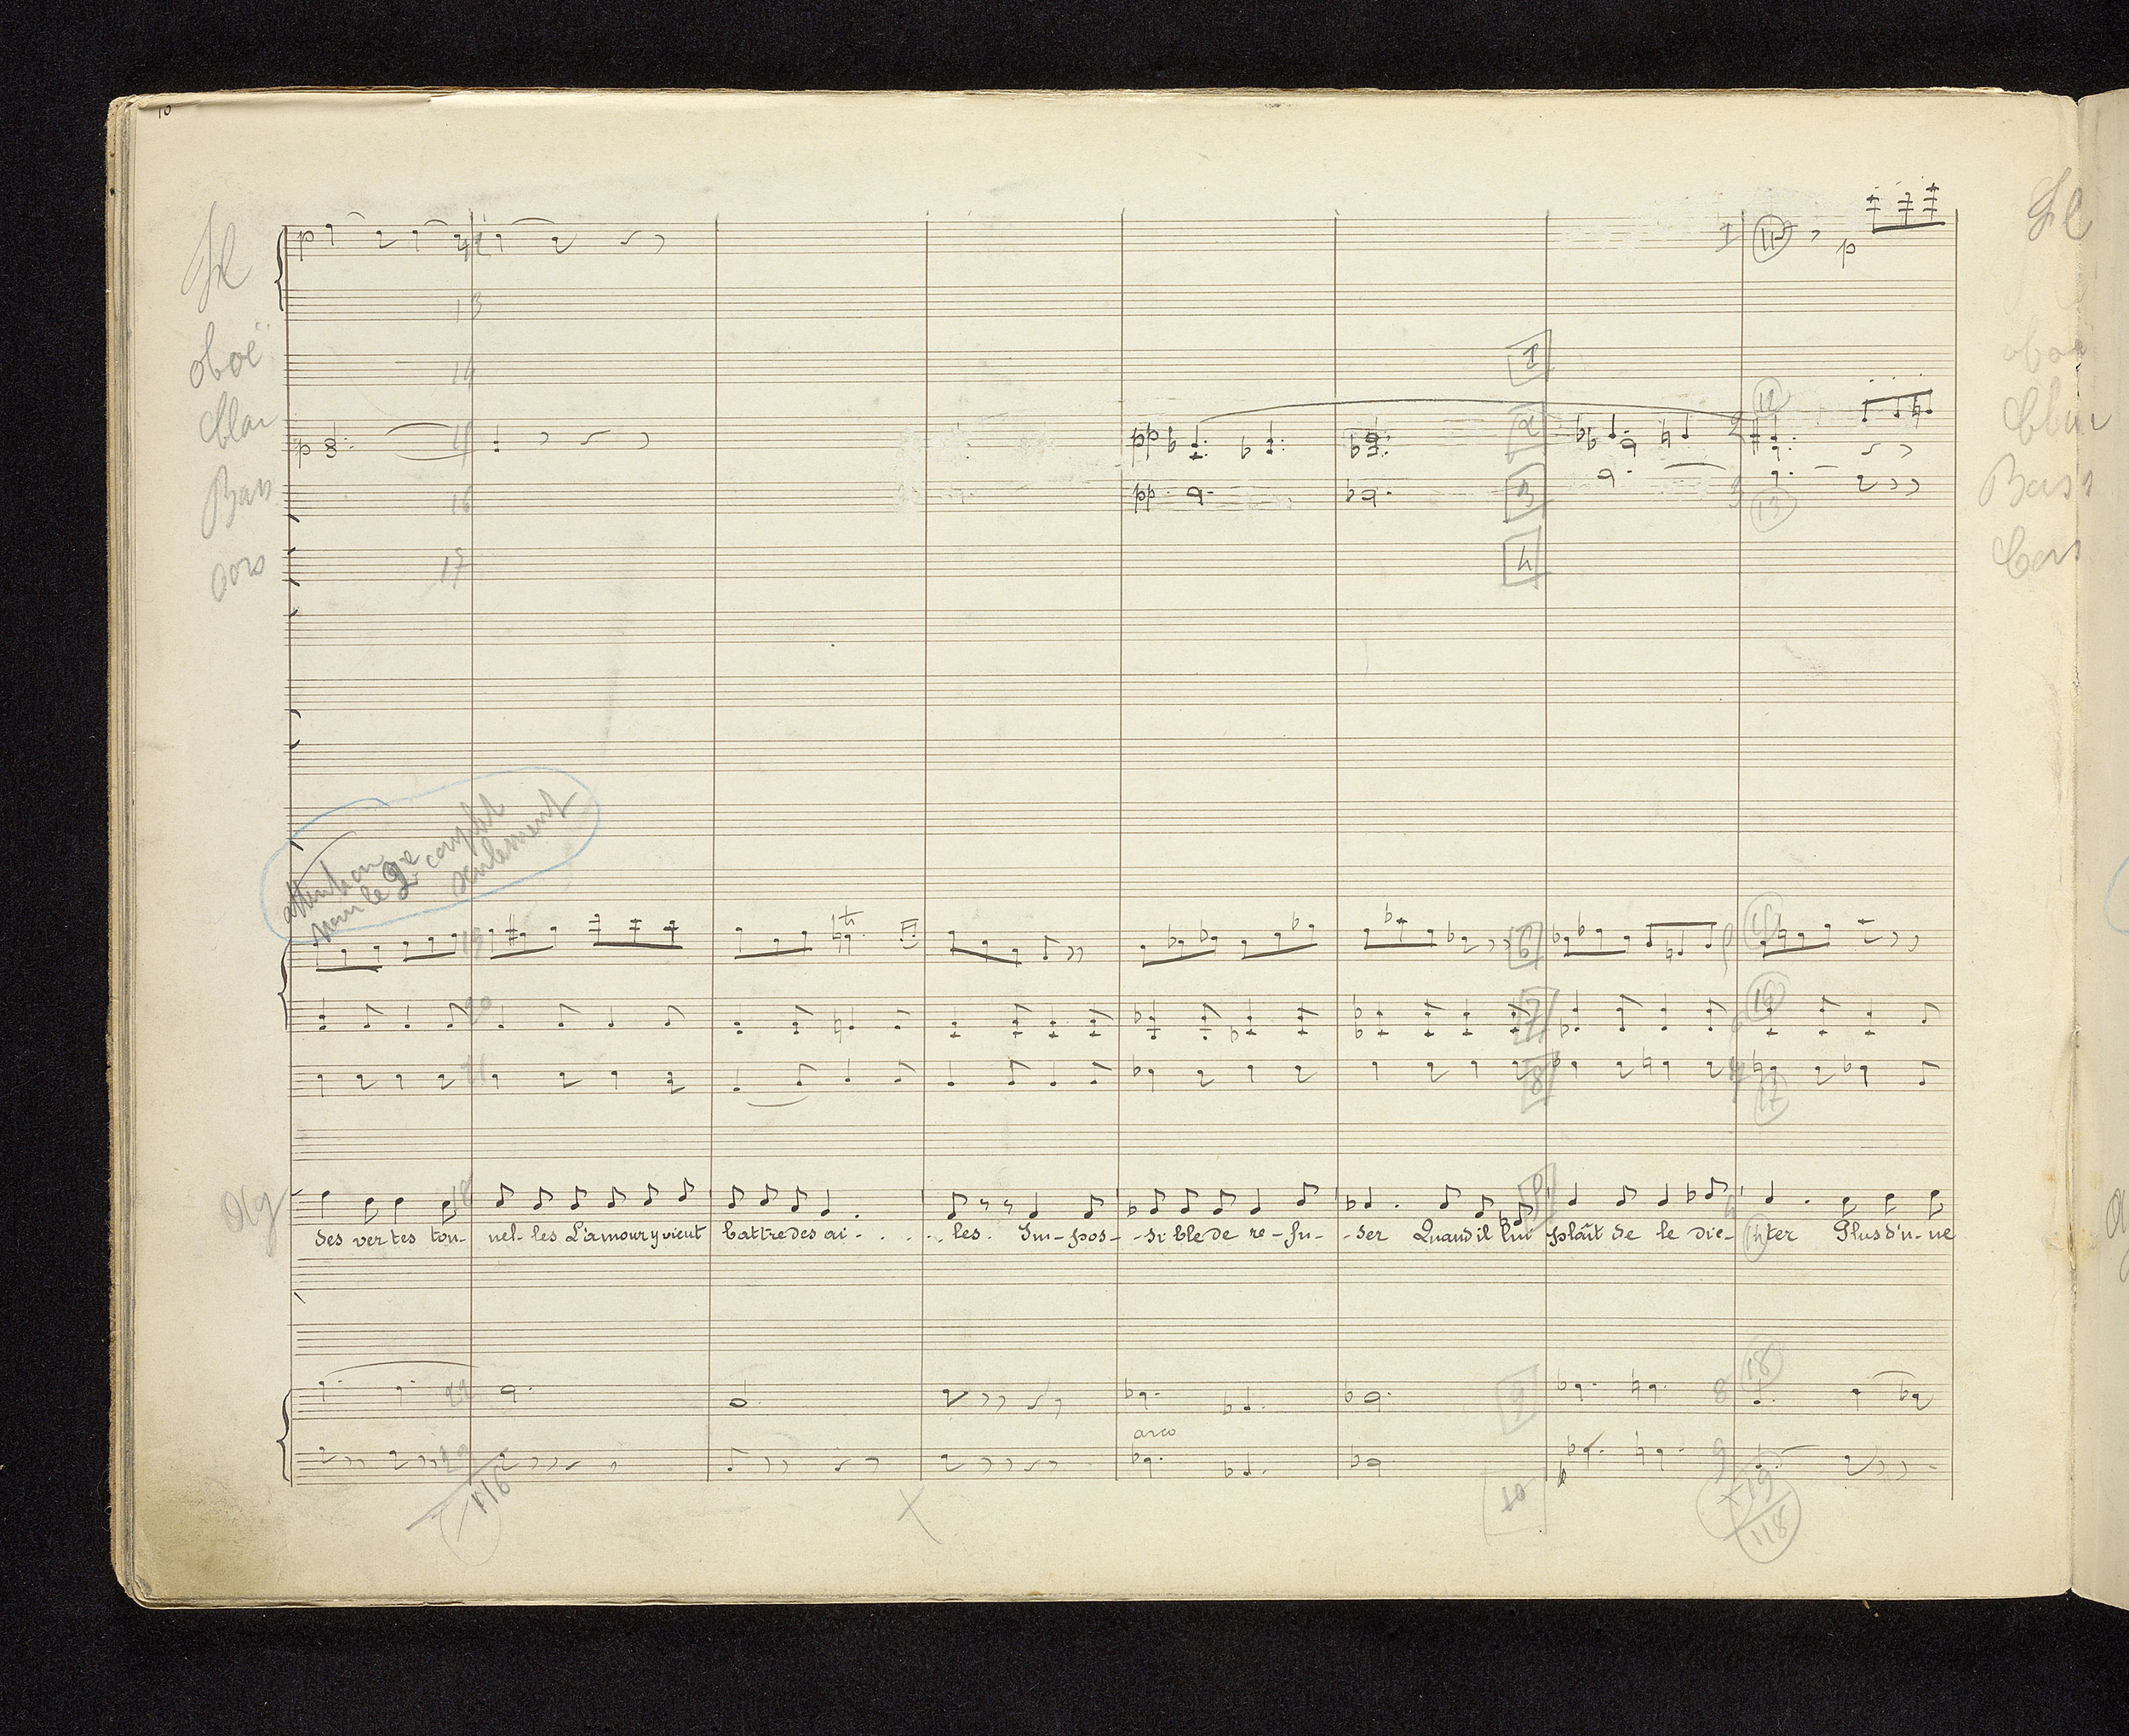 10
Fl
Fl
p
12
1
11
p
13
oboë
oboe
14
1
Clar
p
15
pp
2
2
12
Clar
Bass
16
pp
3
3
13
Bass
cors
17
4
Cors
attention
pour le 2e couplet
seulement
19
tr
20
21
8
17
Ag
18
des ver tes ton- nel- les L'amour y vient battre des ai - . . . . les. Im- pos- - si ble de re- fu- - ser Quand il lui plaît de le dic- ter Plus d'u- ne
22
9
8
18
arco
23
p
9
19
116
10
118